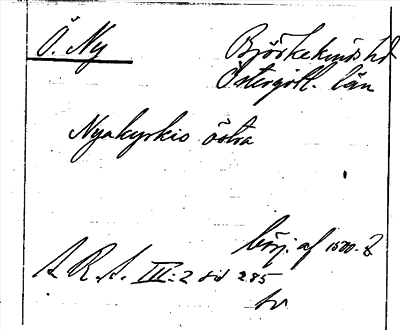 Ö. Ny
Björkekinds hd
Östergötl. län
Nyakyrkio östra
börj. af 1500-t.
S.R.A. III:2 sid 285